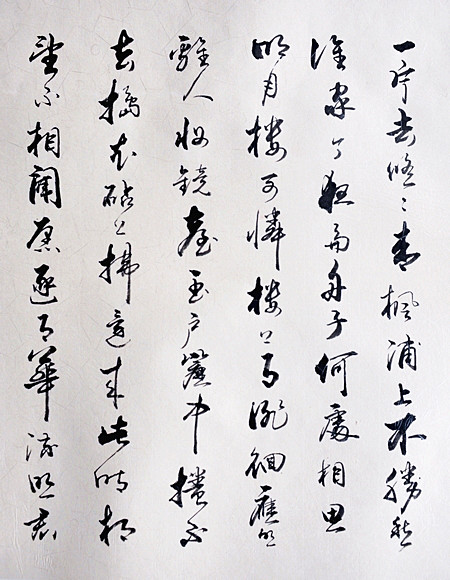 一片去悠々青楓浦上不勝愁
誰家今夜扁舟子何處相思
明月樓可憐樓上月徘徊應照
離人妝鏡臺玉戶簾中捲不
去搗衣砧上拂還來此時相
望不相聞願逐月華流照君